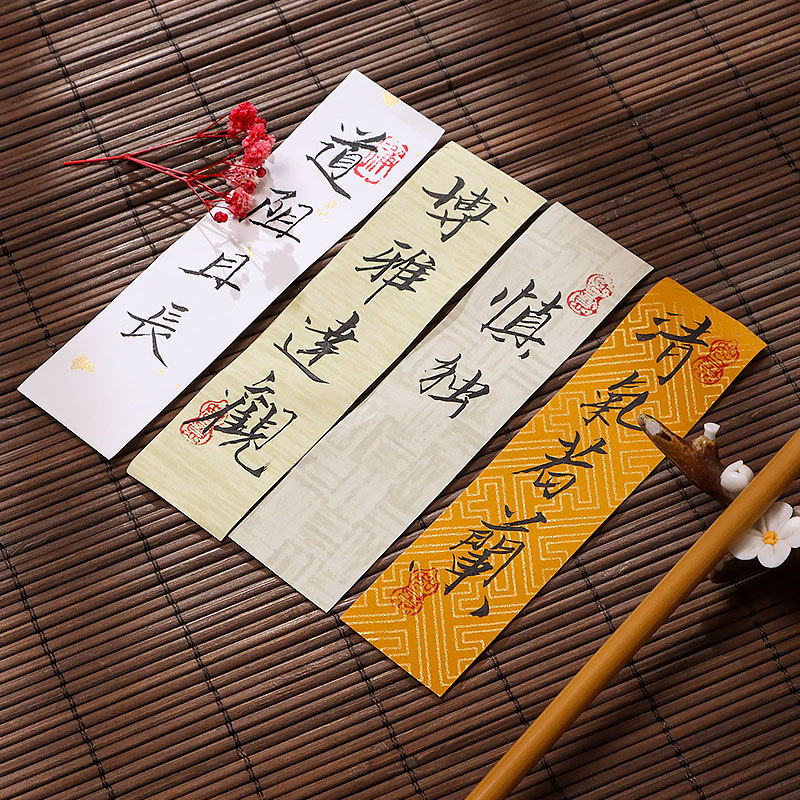 道阻且長
博雅達觀
慎独
清氣若蘭